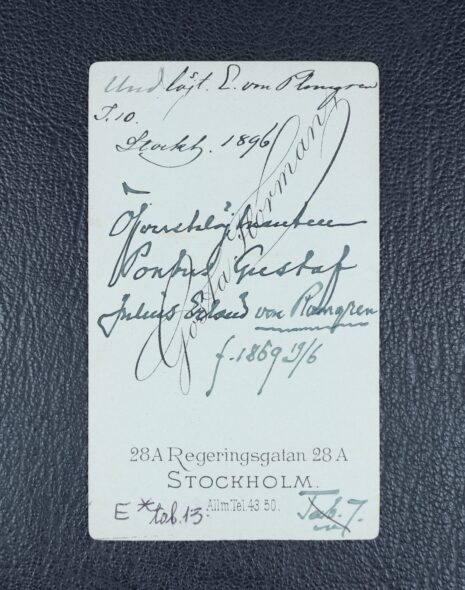 Und löjt. E. von Plomgren
I.10.
Stockh. 1896
Gösta Florman
Öfverstelöjtnanten
Pontus Gustaf
Julius Erland von Plomgren
f. 1869 19/6
28A Regeringsgatan 28A
STOCKHOLM.
Allm Tel. 43 50.
E * tab. 13.
Tab. 7.